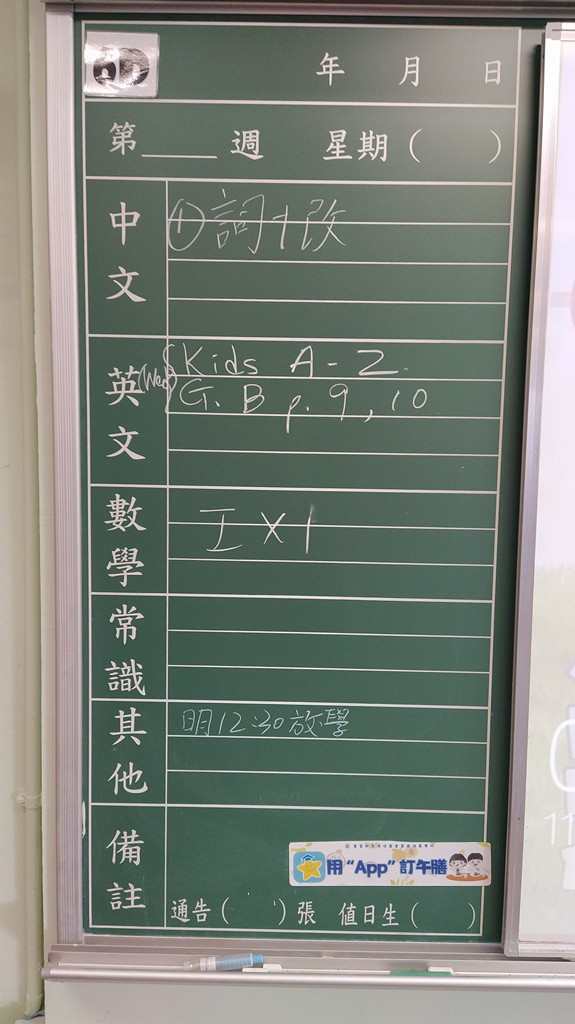 年 月 日
第____週 星期( )
中文
①詞+改
英文
(Wed) Kids A-Z.
G.B p.9,10
數學
工×1
常識
其他
明12:30放學
備註
用“App”訂午膳
通告( )張 值日生( )
11